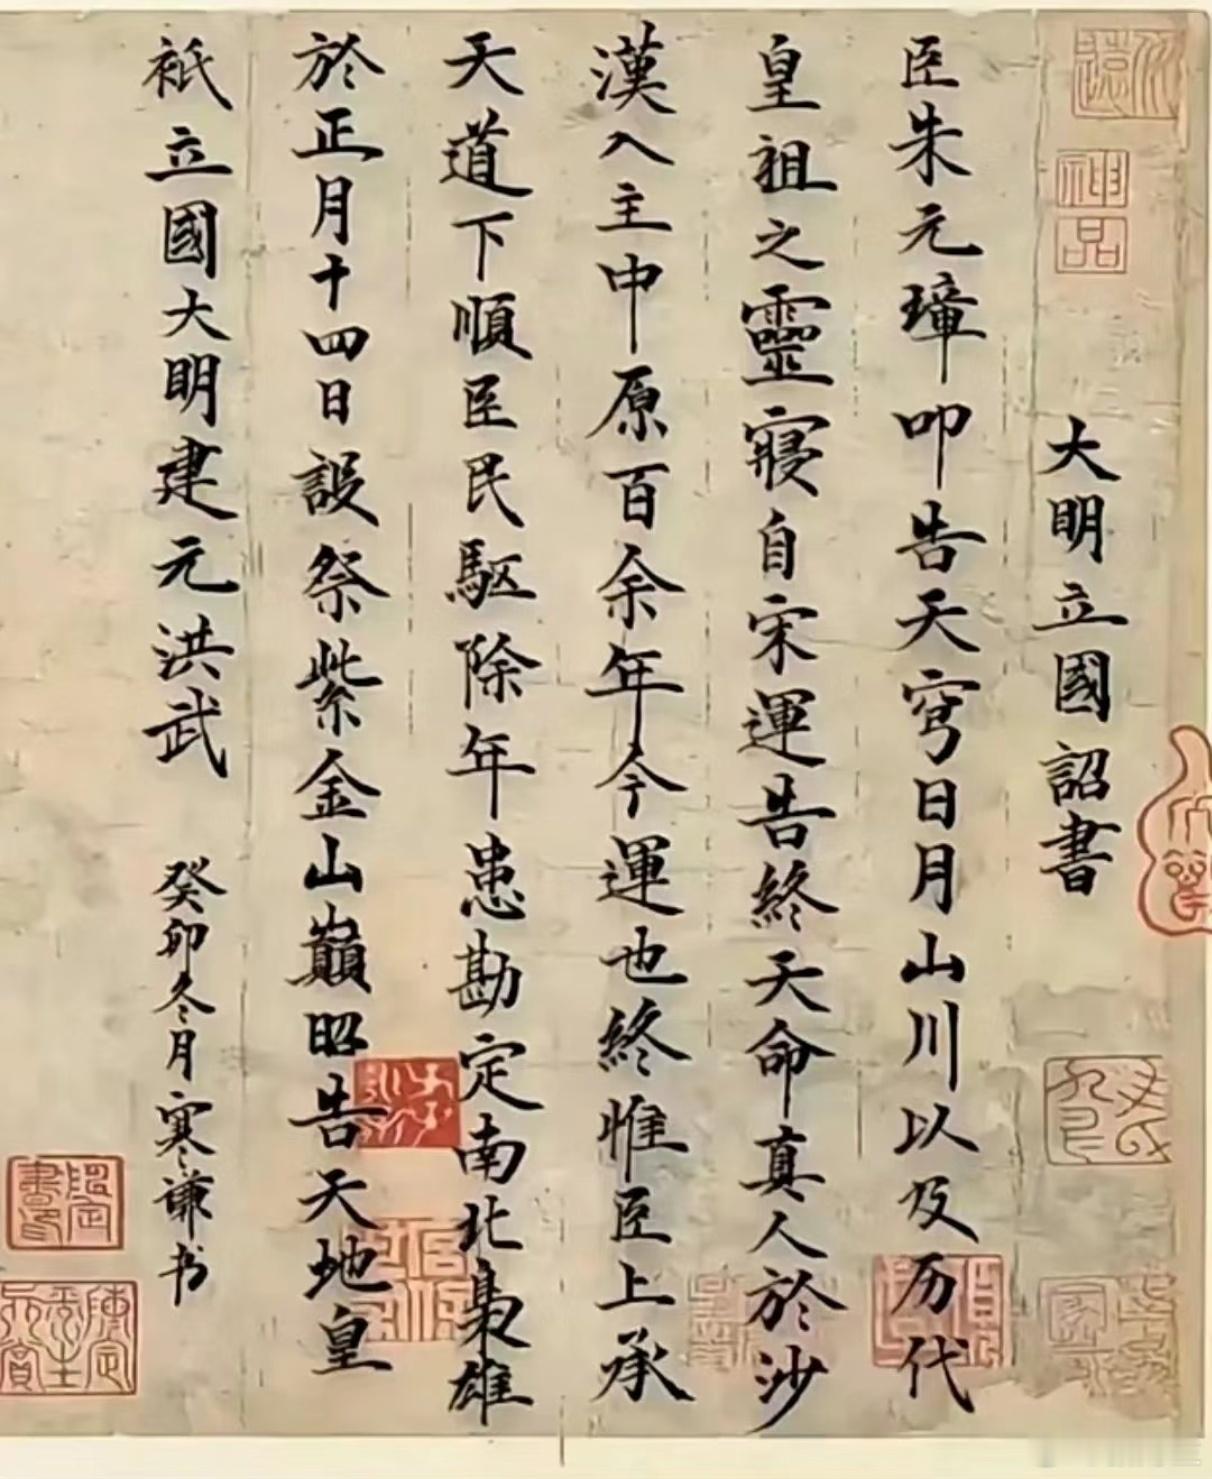 大明立國詔書
臣朱元璋叩告天穹日月山川以及历代
皇祖之靈寢自宋運告終天命真人於沙
漠入主中原百余年今運也終惟臣上承
天道下順臣民駆除年患勘定南北梟雄
於正月十四日設祭紫金山巔昭告天地皇
祇立國大明建元洪武
癸卯冬月寒谦书
神品